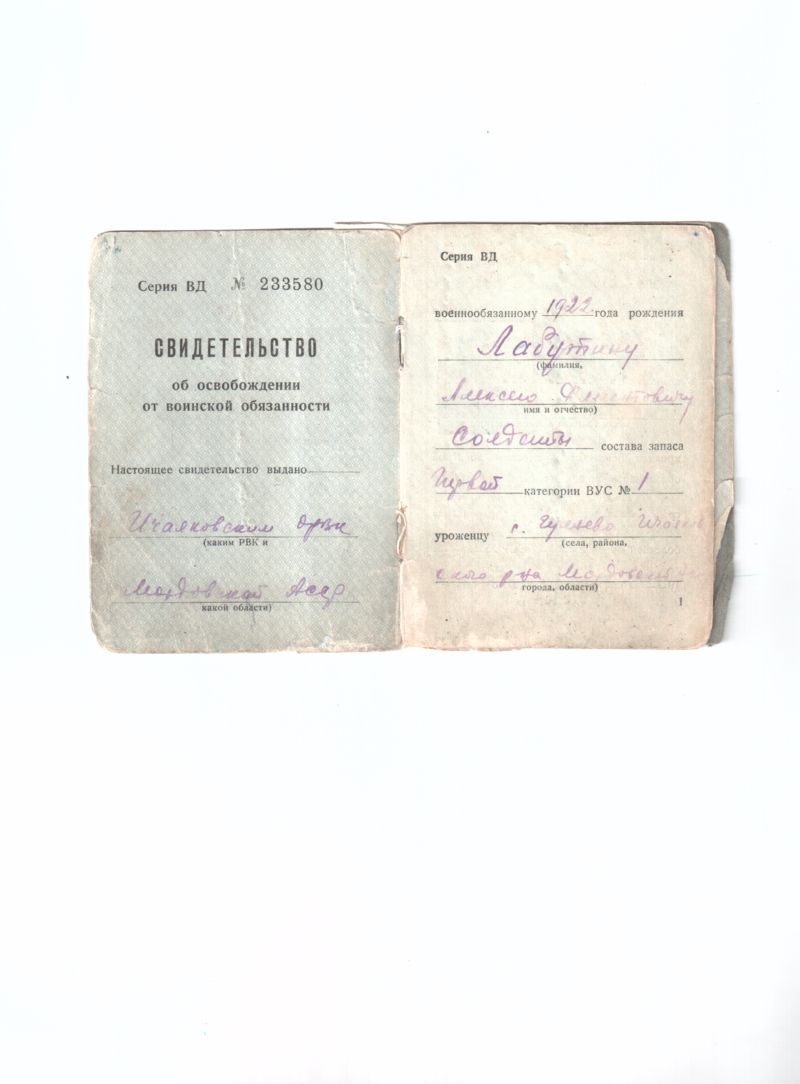 Серия ВД № 233580
СВИДЕТЕЛЬСТВО
об освобождении
от воинской обязанности
Настоящее свидетельство выдано
Ичалковским
(каким РВК и
Мордовской Асср
какой области)
Серия ВД
военнообязанному 1922 года рождения
Лабутину
(фамилия,
Алексею
имя и отчество)
Солдаты состава запаса
категории ВУС № 1
уроженцу с.
(села, района,
ского р-на
города, области)
1